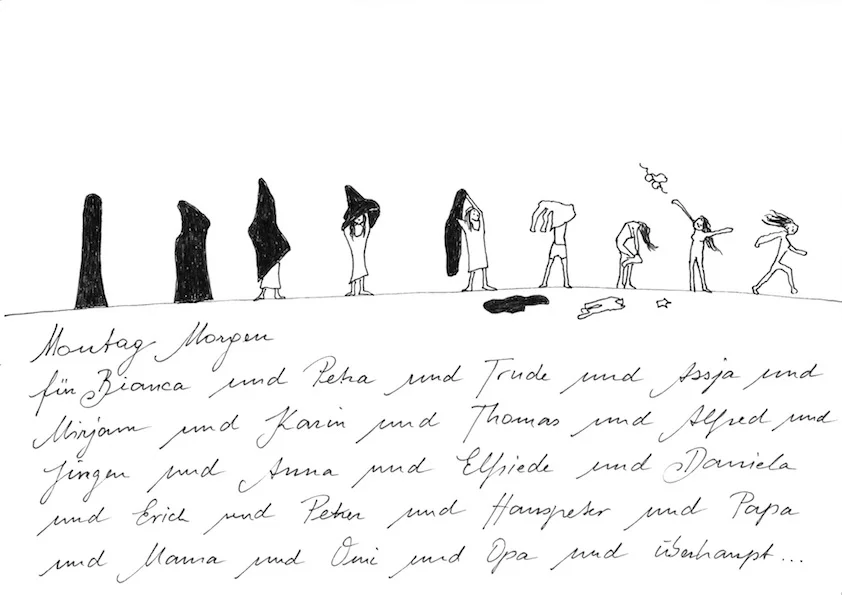 Montag Morgen
für Bianca und Petra und Trude und Assja und
Mirjam und Karin und Thomas und Alfred und
Jürgen und Anna und Elfriede und Daniela
und Erich und Peter und Hanspeter und Papa
und Mama und Omi und Opa und überhaupt...